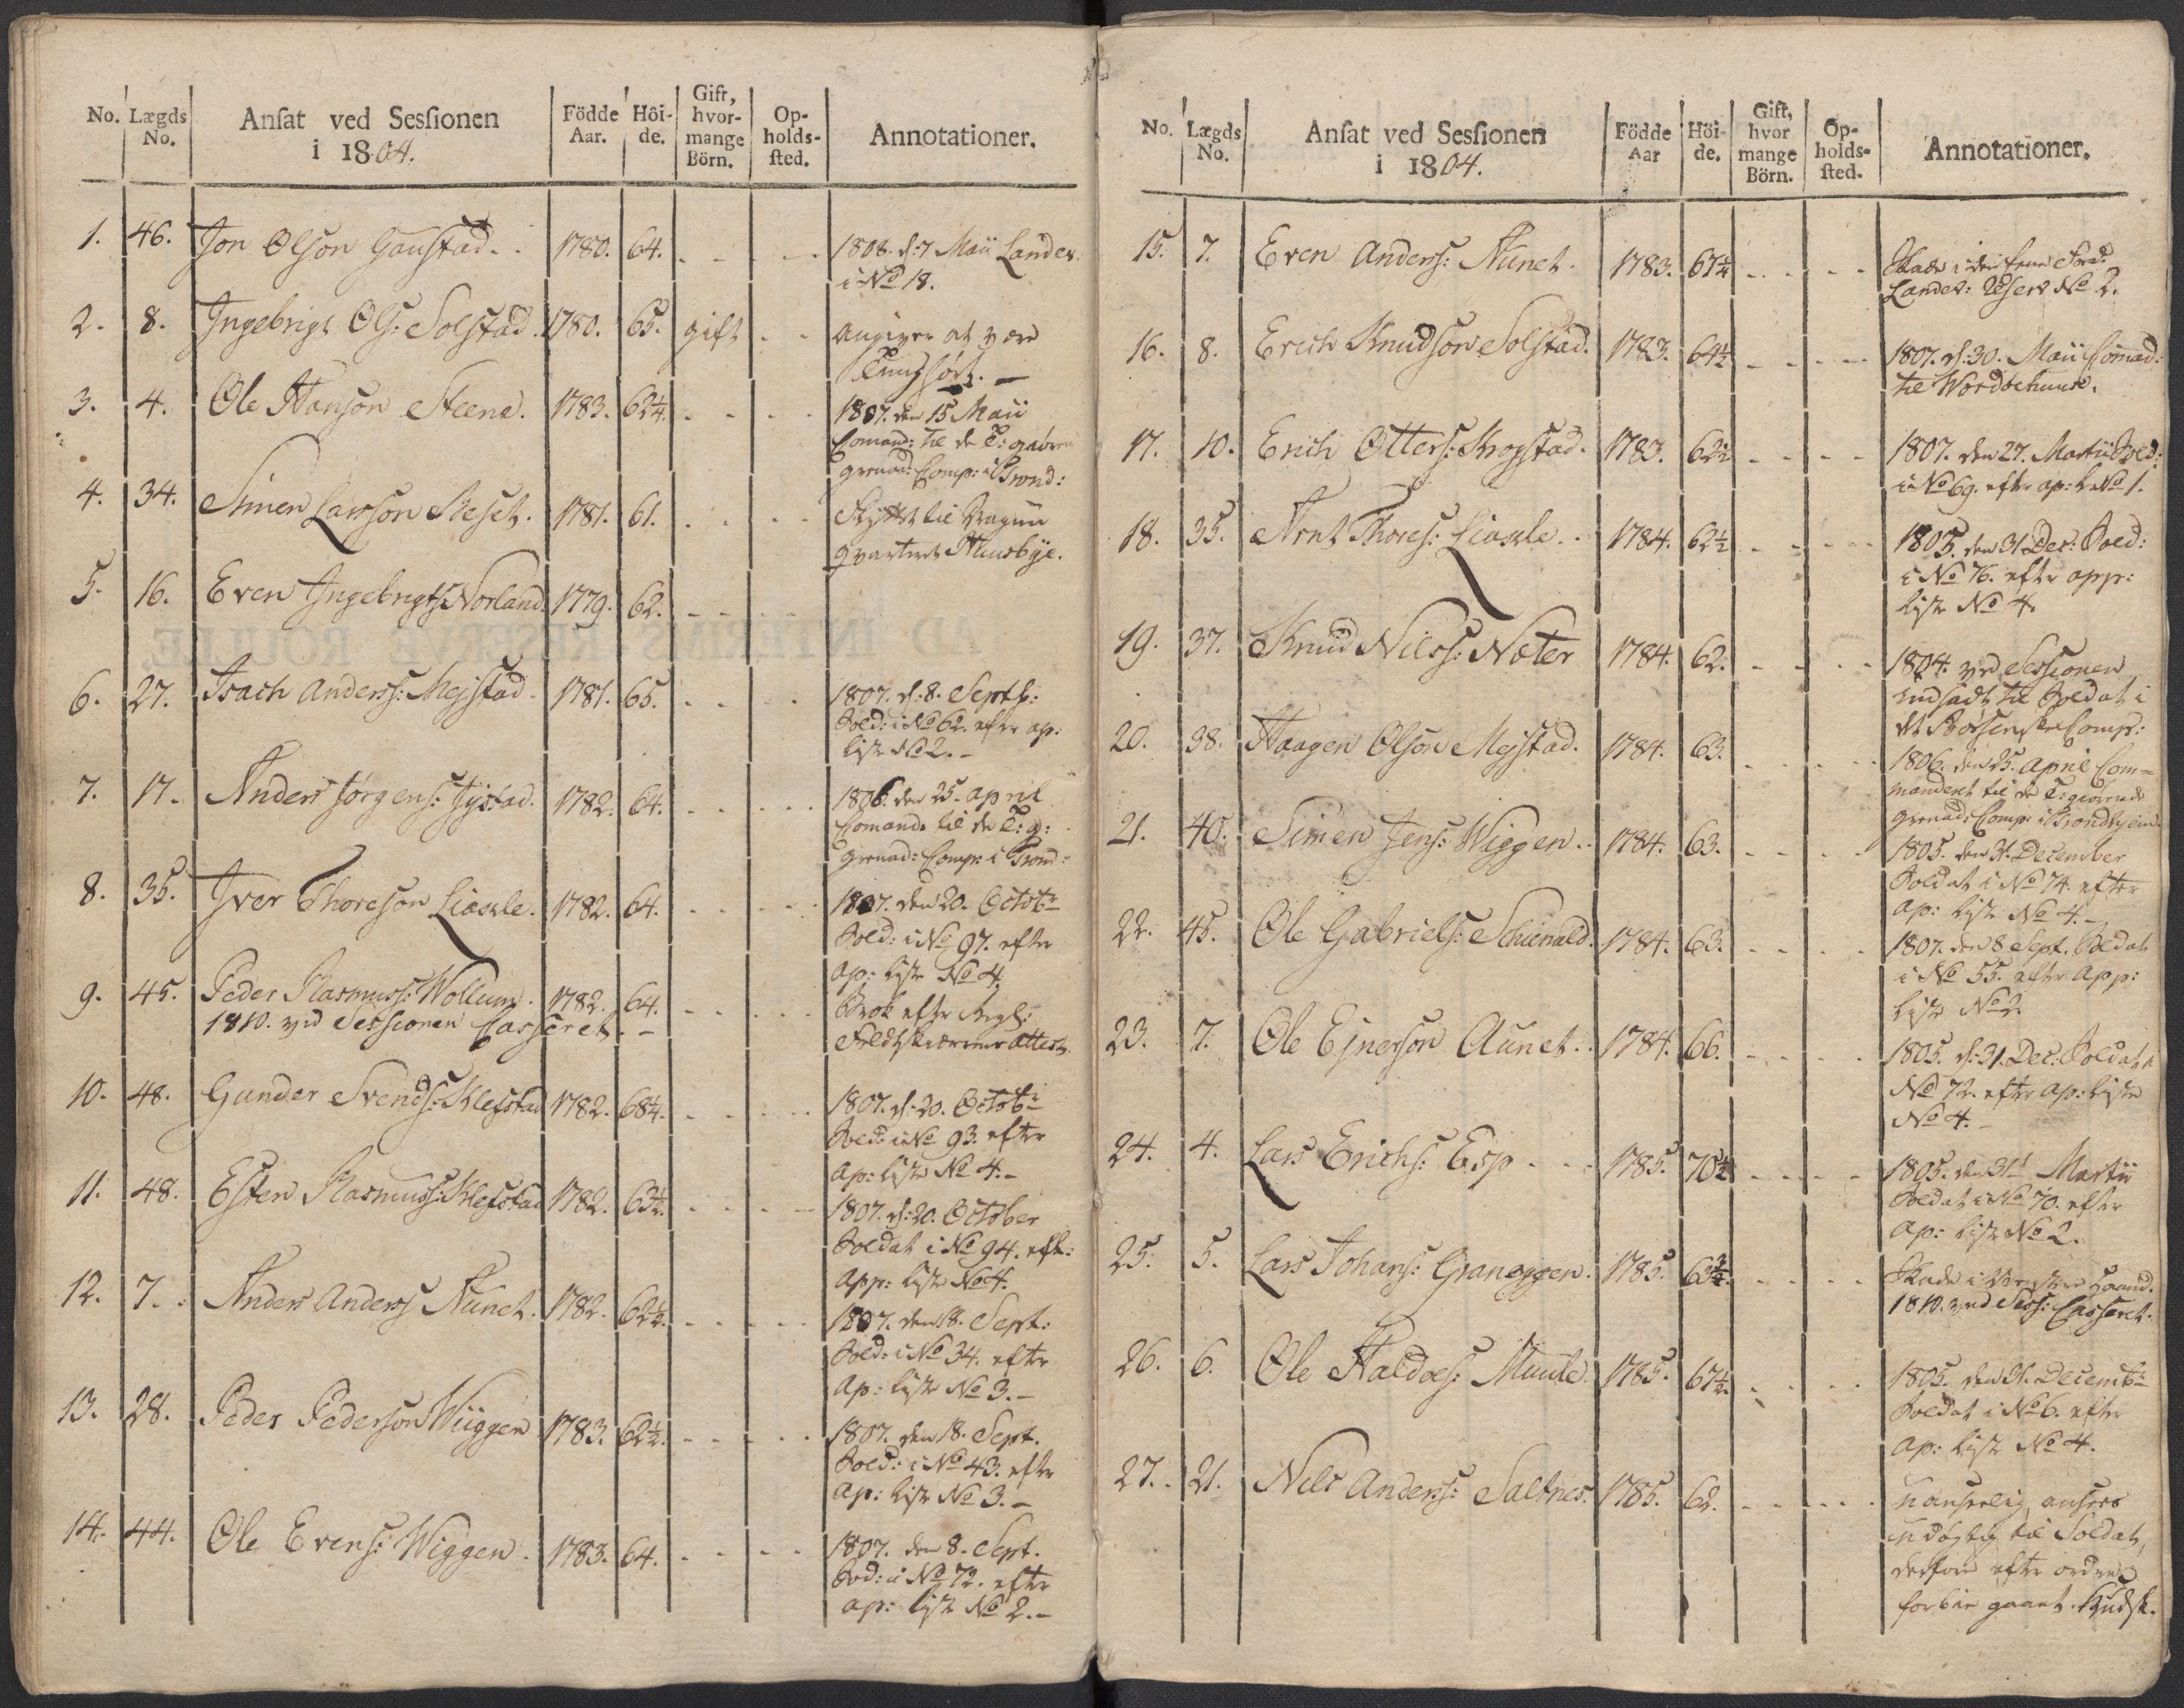 No. Lægds No. Ansat ved Sessionen i 1804. Födde Aar. Höi-de. Gift, hvor-mange Börn. Op-holds-sted. Annotationer.
1. 46. Jon Olson Gaustad. 1780. 64. 1808. d: 7 Maii Landev.
i No 18.
2. 8. Ingebrigt Ols: Solstad. 1780. 65. gift angiver at være
3. 4. Ole Hanson Steene. 1783. 62¼. 1807. den 15 Maii
Comand: til de T: giøren
grenad: Comp: i Trond:
4. 34. Simen Larsson Reset. 1781. 61.
5. 16. Even Ingebrigts: Norland. 1779. 62.
6. 27. Isach Anderss: Mejstad. 1781. 65. 1807. d: 8. Septb:
Sold: i No 62. efter ap:
liste No 2. -
7. 17. Anders Jørgens: Tysstad. 1782. 64. 1806. den 25. April
Comand. til de T: g:
grenad: Comp: i Trond:
8. 35. Iver Thoreson Liaxle. 1782. 64. 1807. den 20. Octobr
Sold: i No 97. efter
ap: liste No 4.
9. 45. Peder Rasmuss: Wollum. 1782. 64. Brok efter Regt:
1810. ved Sessionen Casseret. - Feldtskiærerens Attest.
10. 48. Gunder Svends: Klefstad 1782. 68¼. 1807. d: 20. Octobr
Sold: i No 93. efter
Ap: liste No 4. -
11. 48. Esten Rasmuss: Klefstad 1782. 63½. 1807. d: 20. October
Soldat i No 94. eft:
App: liste No 4.
12. 7. Anders Anders: Aunet. 1782. 62½. 1807. den 18. Sept:
Sold: i No 34. efter
Ap: liste No 3. -
13. 28. Peder Pederson Wiggen 1783. 62½. 1807. den 18. Sept.
Sold: i No 43. efter
Ap: liste No 3. -
14. 44. Ole Evens: Wiggen. 1783. 64. 1807. den 8. Sept.
Sod: i No 72. efter
ap: liste No 2. -
No. Lægds No. Ansat ved Sessionen i 1804. Födde Aar Höi-de. Gift, hvor mange Börn. Op-holds-sted. Annotationer.
15. 7. Even Anders: Aunet. 1783. 67¼
Landev: Reserv No 2.
16. 8. Erich Knudson Solstad. 1783. 64½ 1807. d: 30. Maii Comad:
17. 10. Erich Otters: Krogstad. 1783. 62½ 1807. den 27. Martii Sold:
i No 69. efter ap: L: No 1.
18. 35. Arnt Thores: Liaxle. 1784. 62½ 1805. den 31 Dec: Sold:
i No 76. efter app:
liste No 4.
19. 37. Knud Nilss: Noter 1784. 62. 1804. ved Sessionen
indsadt til Soldat i
det Børsenske Comp:
20. 38. Haagen Olson Mejstad. 1784. 63. 1806. den 25. April Com-
manderet til de T: giørende
grenad: Comp: i Trondhjem.
21. 40. Simen Jens: Wiggen. 1784. 63. 1805. den 31. December
Soldat i No 74. efter
ap: liste No 4. -
22. 45. Ole Gabriels: Schienald. 1784. 63. 1807. den 8 Sept. Soldat
i No 55. efter App:
liste No 2
23. 7. Ole Ejnerson Aunet. 1784. 66. 1805. d: 31. Dec. Soldat i
No 72. efter Ap: liste
No 4. -
24. 4. Lars Erichs: Esp 1785. 70¼ 1805. den 31t Martii
Soldat i No 70. efter
Ap: liste No 2.
25. 5. Lars Johans: Graneggen. 1785. 63¾. Skade i Venstre Haand.
1810. ved Sess: Casseret.
26. 6. Ole Haldoes: Muule. 1785. 67½. 1805. den 31. Decembr
Soldat i No 6. efter
Ap: liste No 4.
27. 21. Nils Anderss: Saltnes. 1785. 62. uanseelig, ansees
udygtig til Soldat,
derfore efter ordre
forbie gaaet.